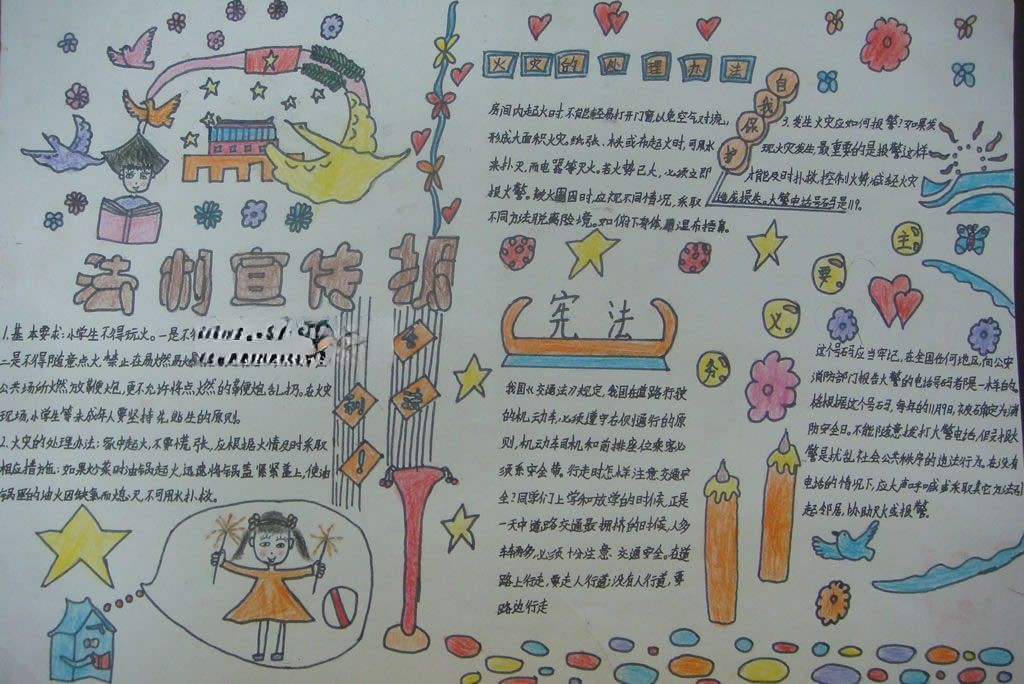 法制宣传报
1.基本要求:小学生不得玩火。一是不
二是不得随意点火,禁止在易燃易
公共场所燃放鞭炮,更不允许将点燃的鞭炮乱扔。在火灾
现场,小学生等未成年人要坚持先逃生的原则。
2.火灾的处理办法:家中起火,不要慌张,应根据火情及时采取
相应措施:如果炒菜时油锅起火,迅速将锅盖紧紧盖上,使油
锅里的油火因缺氧而熄灭,不可用水扑救。
火灾的处理办法
房间内起火时,不能轻易打开门窗以免空气对流,
形成大面积火灾。纸张、木头或布起火时,可用水
来扑灭,而电器等灭火。若火势已大,必须立即
报火警。被火围困时,应视不同情况,采取
不同方法脱离险境。如俯下身体,用湿布捂鼻。
自我保护
3.发生火灾应如何报警?如果发
现火灾发生,最重要的是报警,这样
才能及时扑救,控制火势,减轻火灾
造成损失。火警电话号码是119。
宪法
我国《交通法》规定,我国在道路行驶
的机动车,必须遵守右侧通行的原
则,机动车司机和前排座位乘客必
须系安全带。行走时怎样注意交通安
全?同学们上学和放学的时候,正是
一天中道路交通最拥挤的时候,人多
车辆多,必须十分注意交通安全。在道
路上行走,要走人行道;没有人行道,要
路边行走
主要义务
这个号码应当牢记,在全国任何地区,向公安
消防部门报告火警的电话号码都是一样的。
根据这个号码,每年的11月9日,被确定为消
防安全日。不能随意拨打火警电话,假报火
警是扰乱社会公共秩序的违法行为。在没有
电话的情况下,应大声呼喊或采取其它方法引
起邻居,协助灭火或报警。